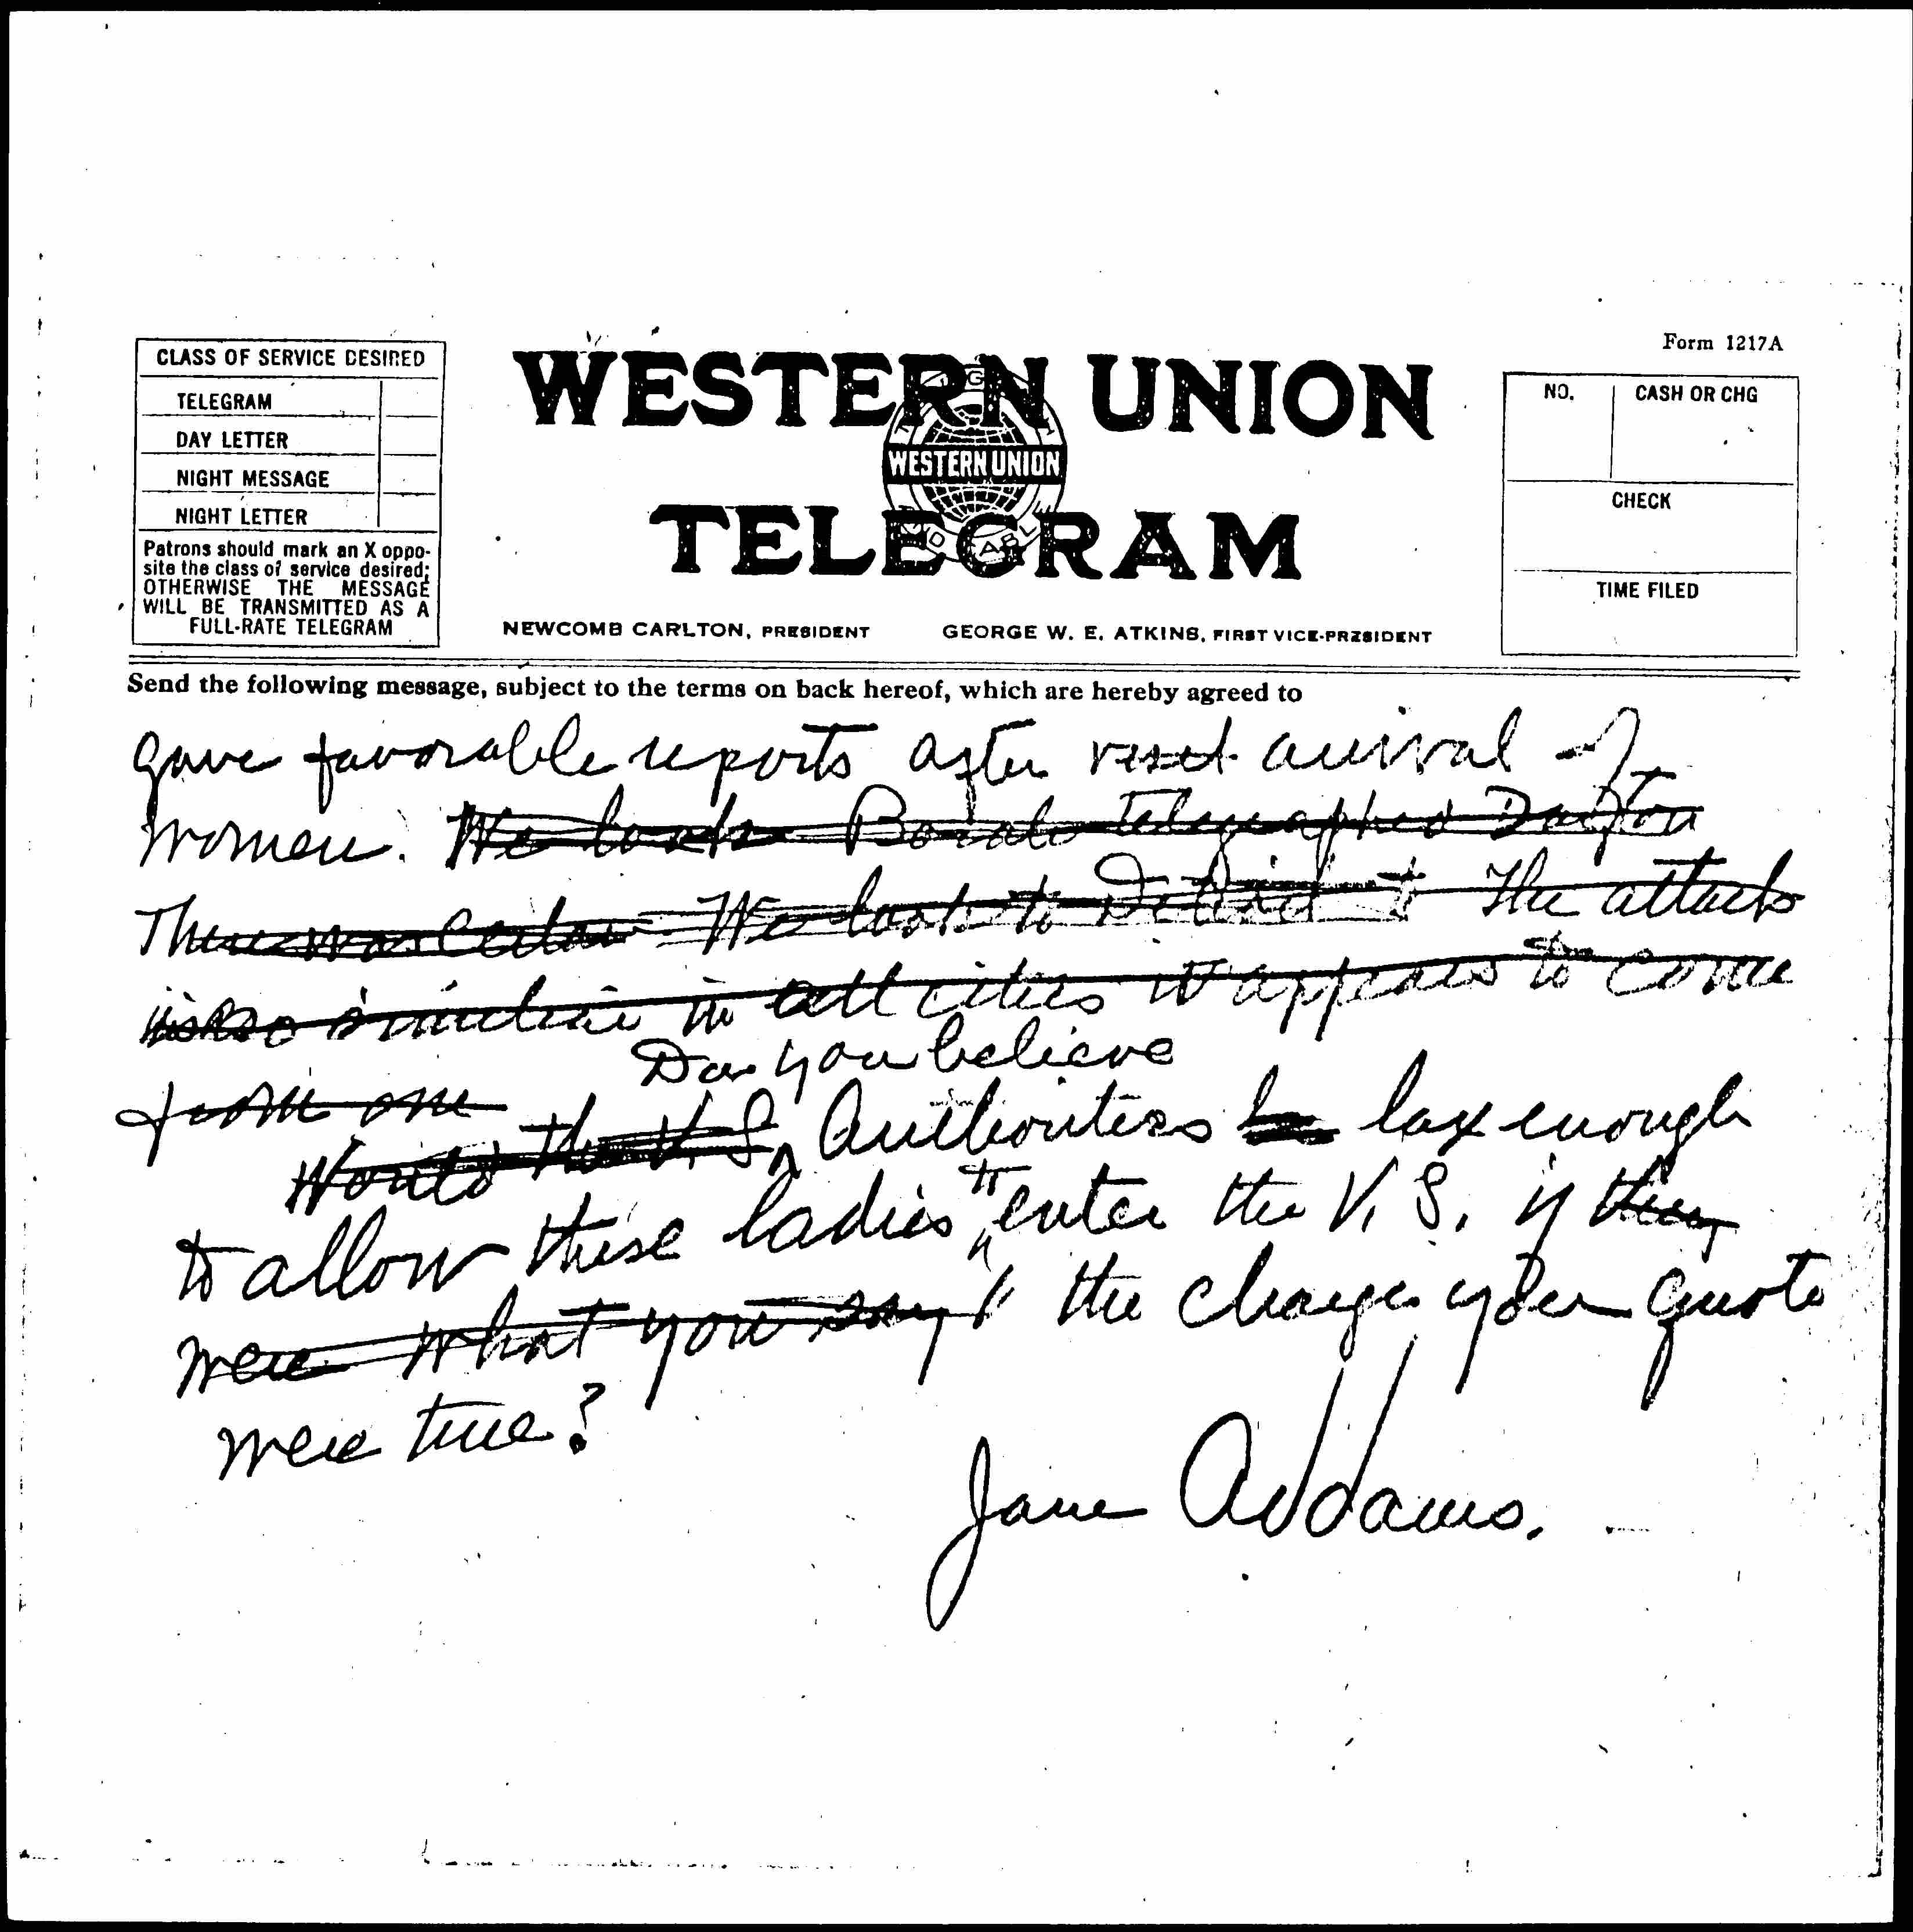 Form 1217A
CLASS OF SERVICE DESIRED
TELEGRAM
DAY LETTER
NIGHT MESSAGE
NIGHT LETTER
Patrons should mark an X oppo-
site the class of service desired;
OTHERWISE THE MESSAGE
WILL BE TRANSMITTED AS A
FULL-RATE TELEGRAM
WESTERN UNION
WESTERN UNION
TELEGRAM
NEWCOMB CARLTON, PRESIDENT
GEORGE W. E. ATKINS, FIRST VICE-PRESIDENT
NO.
CASH OR CHG
CHECK
TIME FILED
Send the following message, subject to the terms on back hereof, which are hereby agreed to
gave favorable reports after arrival of
women. We Boards telegraphed Dayton
There was We to The attacks
so similar in all cities it appears to come
from one
Do you believe
Would the U.S. Authorities be lax enough
to allow these ladies to enter the U.S. if they
were what you say if the charges you quote
were true?
Jane Addams.